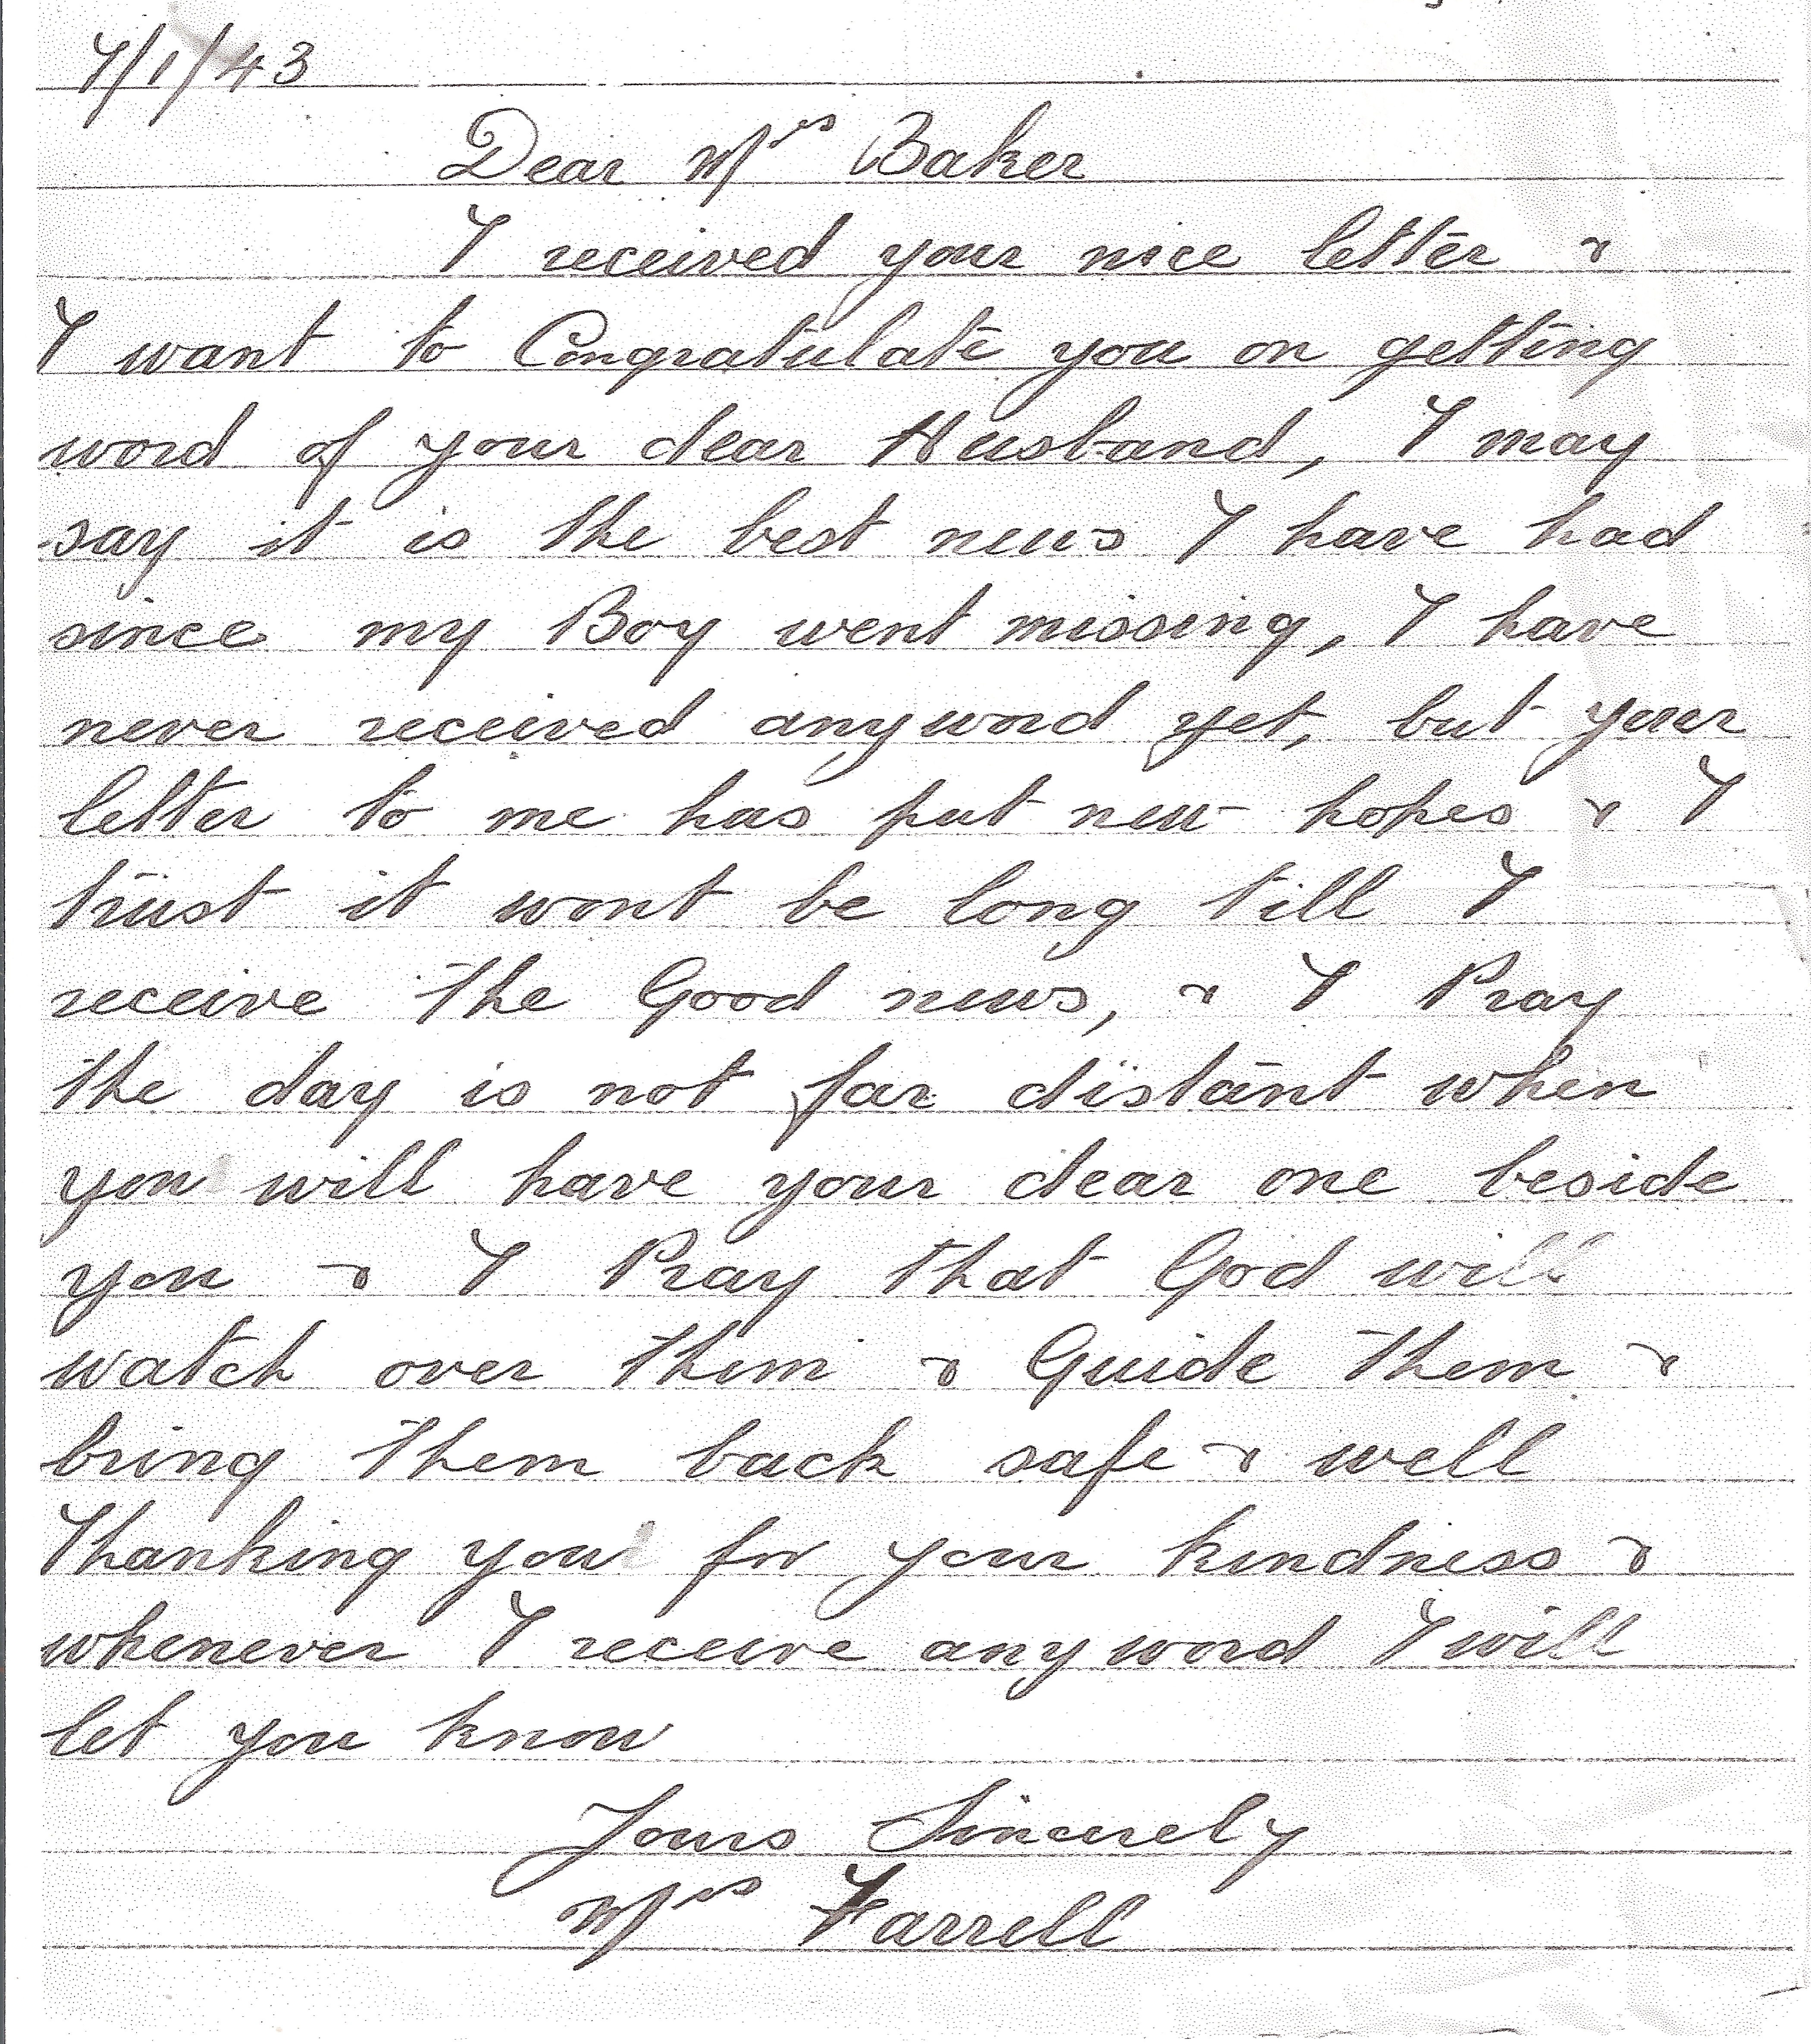 7/1/43
Dear Mrs Baker
I received your nice letter &
I want to Congratulate you on getting
word of your dear Husband, I may
say it is the best news I have had
since my Boy went missing, I have
never received anyword yet, but your
letter to me has put new hopes & I
trust it wont be long till I
receive the Good news, & I Pray
the day is not far distant when
you will have your dear one beside
you & I Pray that God will
watch over them & Guide them &
bring them back safe & well
Thanking you for your kindness &
whenever I receive any word I will
let you know
Yours Sincerely
Mrs Farrell